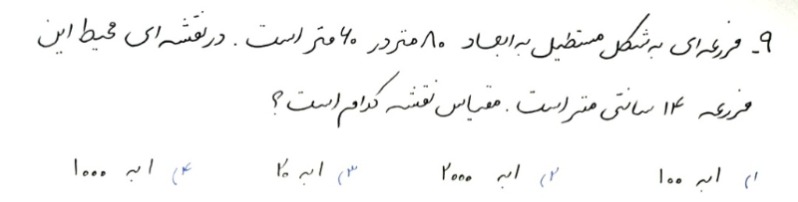 ۹- مزرعه‌ای به شکل مستطیل به ابعاد ۸۰ متر در ۶۰ متر است. در نقشه‌ای محیط این
مزرعه ۱۴ سانتی متر است. مقیاس نقشه کدام است؟
۱) ۱ به ۱۰۰ ۲) ۱ به ۲۰۰۰ ۳) ۱ به ۲۰ ۴) ۱ به ۱۰۰۰